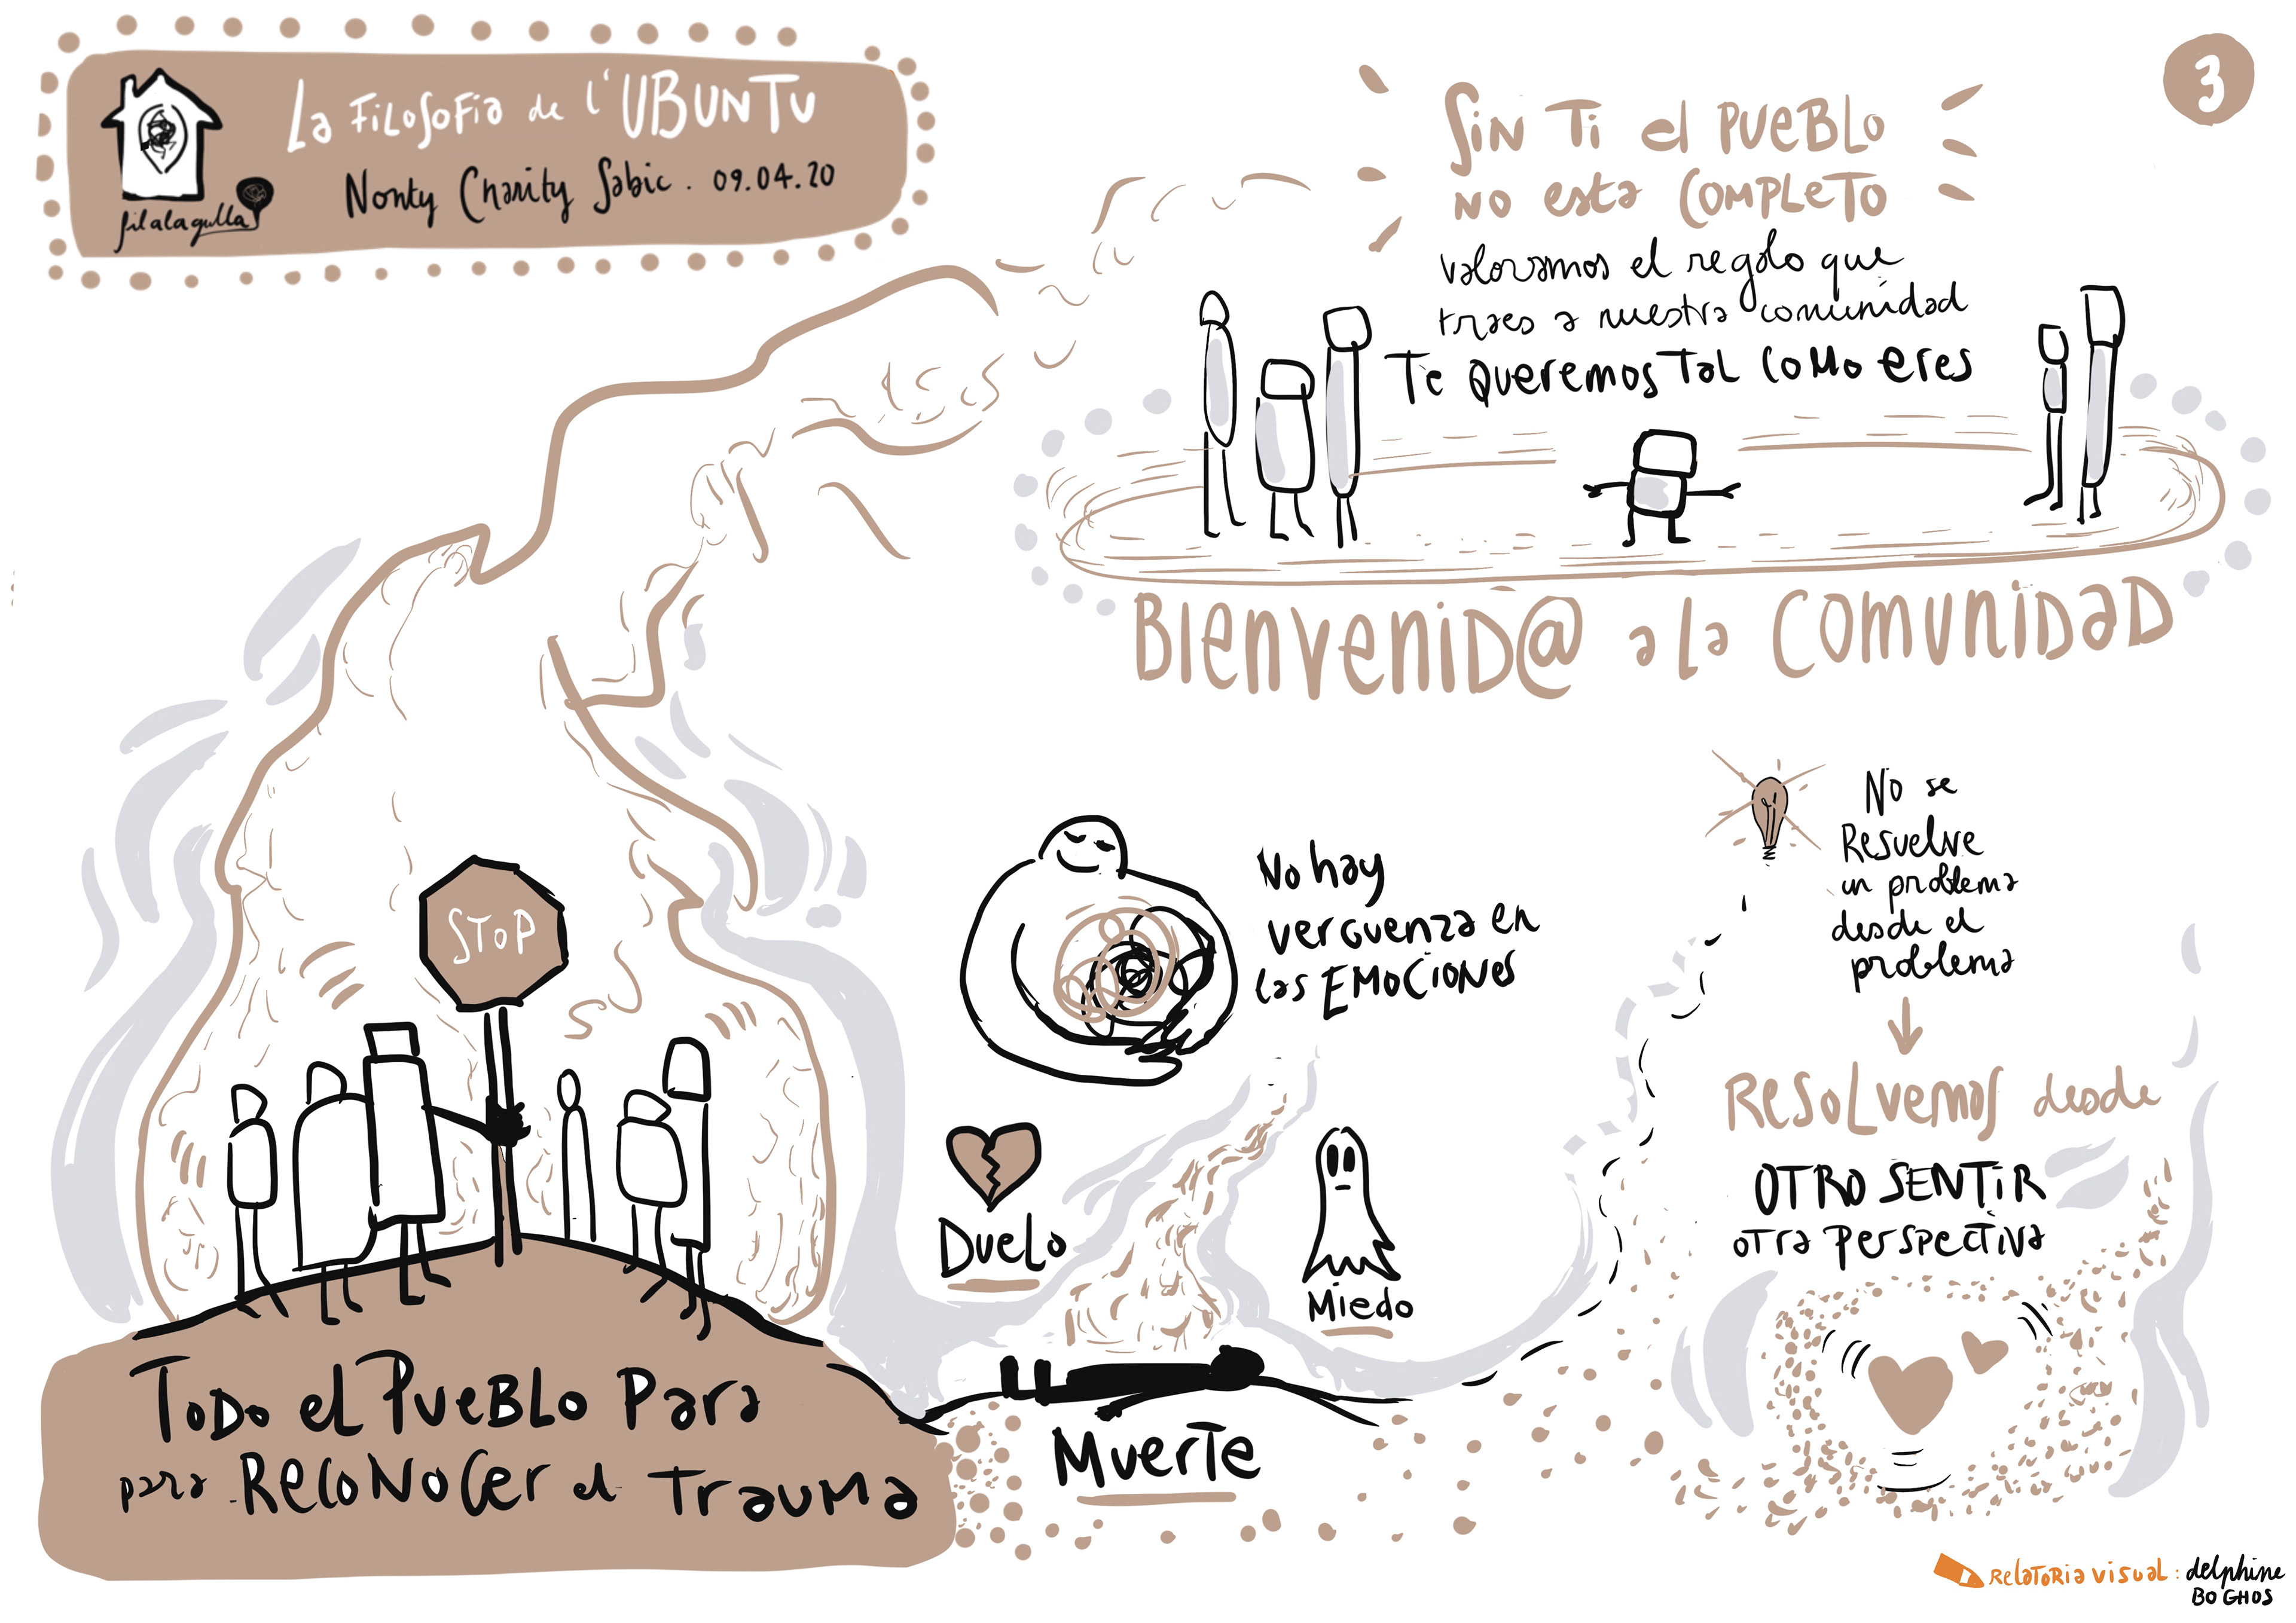 La Filosofia de l'UBUNTU
Nonty Charity Sabic. 09.04.20
filalagulla
3
Sin Ti el PUEBLO
no esta COMPLETO
valoramos el regalo que
traes a nuestra comunidad
Te queremos Tal como eres
BIENVENID@ a la COMUNIDAD
STOP
Todo el PUEBLO Para
para Reconocer el Trauma
No hay
verguenza en
las EMOCIONES
Duelo
Miedo
Muerte
No se
Resuelve
un problema
desde el
problema
Resolvemos desde
OTRO SENTIR
OTRA Perspectiva
Relatoria visual: delphine
BOGHOS